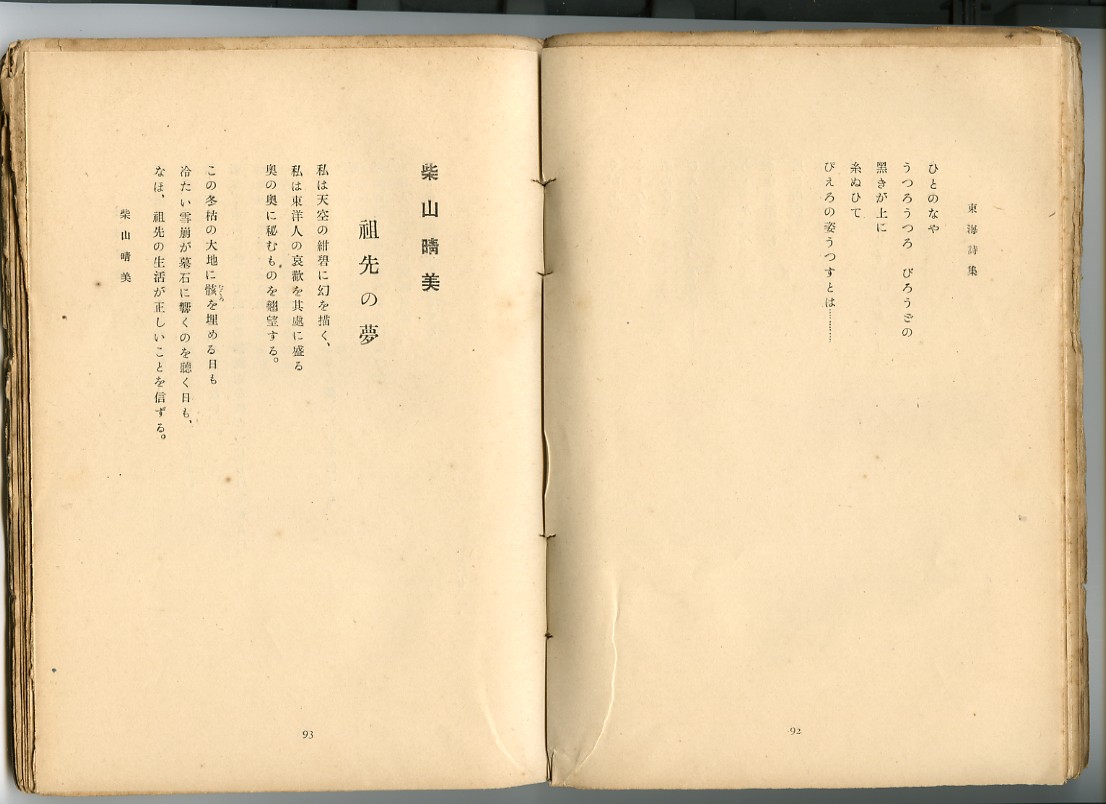 東海詩集
ひとのなや
うつろうつろ　びろうどの
黑きが上に
糸ぬひて
ぴえろの姿うつすとは………
92
柴山晴美
祖先の夢
私は天空の紺碧に幻を描く、
私は東洋人の哀歡を其處に盛る
奥の奥に秘むものを翹望する。
この冬枯の大地に骸を埋める日も
むくろ
冷たい雪崩が墓石に響くのを聽く日も、
なほ、祖先の生活が正しいことを信ずる。
柴山晴美
93